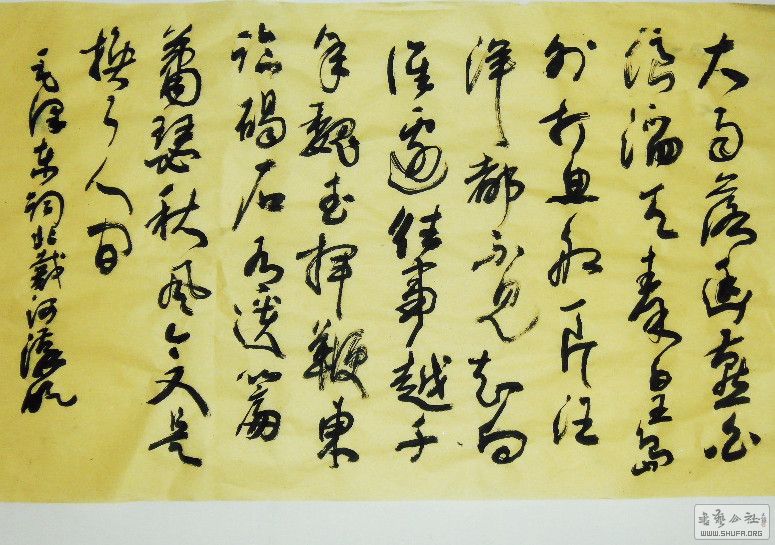 大雨落幽燕白
浪滔天秦皇岛
外打鱼船一片汪
洋都不见知向
谁邊往事越千
年魏武挥鞭東
临碣石有遗篇
蕭瑟秋风今又是
换了人间
毛泽东词北戴河
书艺公社
WWW.SHUFA.ORG